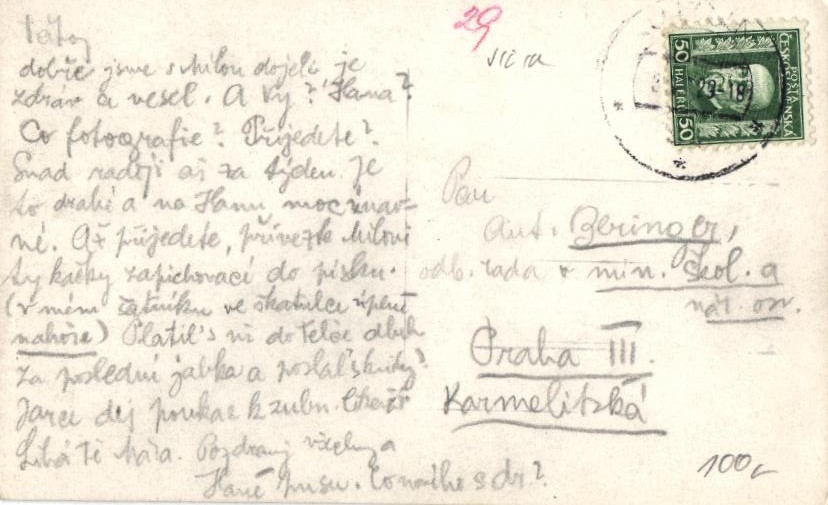 29
dobře jsme s Milou dojeli je
zdráv a vesel. A Vy? Hana?
Co fotografie? Přijedete?
Snad raději až za týden. Je
to drahé a na Hanu moc únav-
né. Až přijedete, přivezte Milovi
ty kačky zapichovací do písku.
(v mém šatníku ve škatulce úplně
nahoře) Platil's už do Telče dluh
za poslední jabka a poslal's
Jarce dej poukaz k zubn. lékaři
Líbá Tě Máňa. Pozdravuj všechny a
Haně pusu. Co s dr?
Pan
Ant. Beringer,
odb. rada v min. škol. a
nár. osv.
Praha III.
Karmelitská
100,-
POŠTA
ČESKOSLOVENSKÁ
50 HALÉŘŮ 50